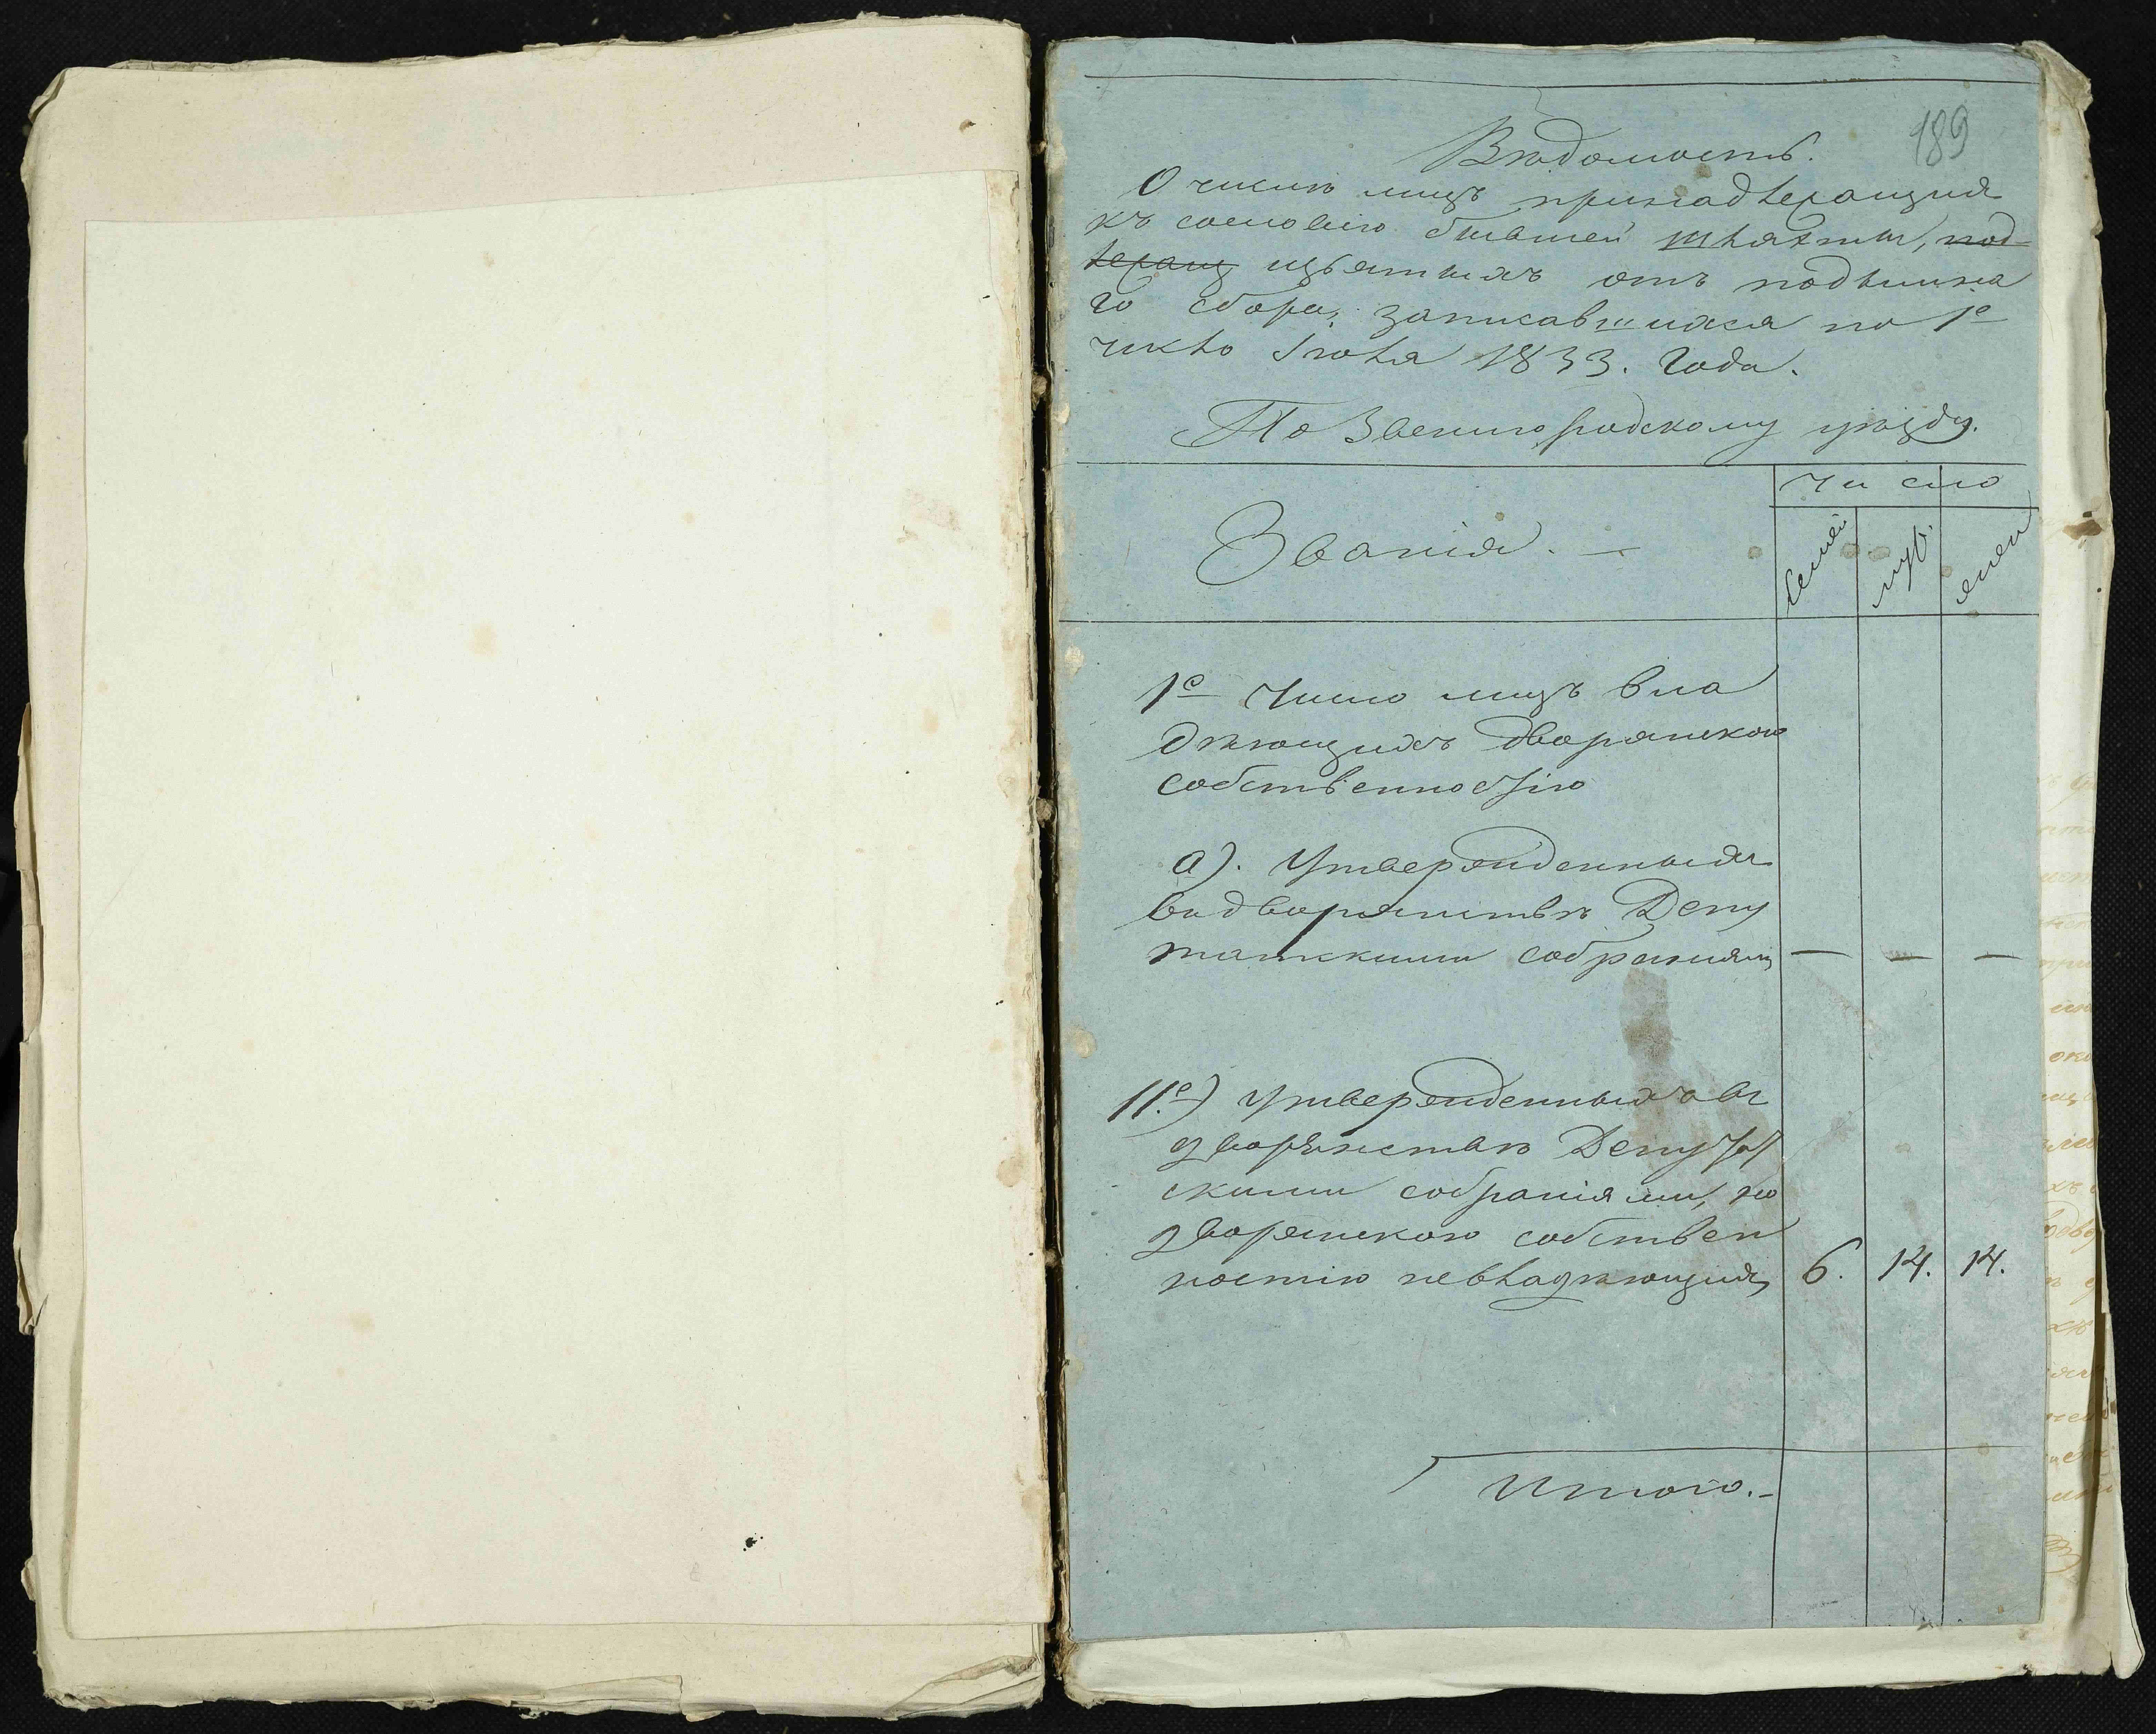 189
Вѣдомость.
О числѣ лицъ принадлежащихъ
къ сословію бывшей шляхты, под
лежащ изъятыхъ отъ подымна
го сбора, записавшихся по 1е
число Іюля 1833. Года.
По Звенигородскому уѣзду.
Званія. —
Число
семей
муж.
жен.
1е Число лицъ вла
дѣющихъ дворянскою
собственностію
а). Утвержденныхъ
въ дворянствѣ Депу
татскими собраніями — — —
11.е) Утвержденныхъ въ
дворянствѣ Депутат
скими собраніями, но
дворянскою собствен
ностію невладѣющихъ 6. 14. 14.
Итого. -